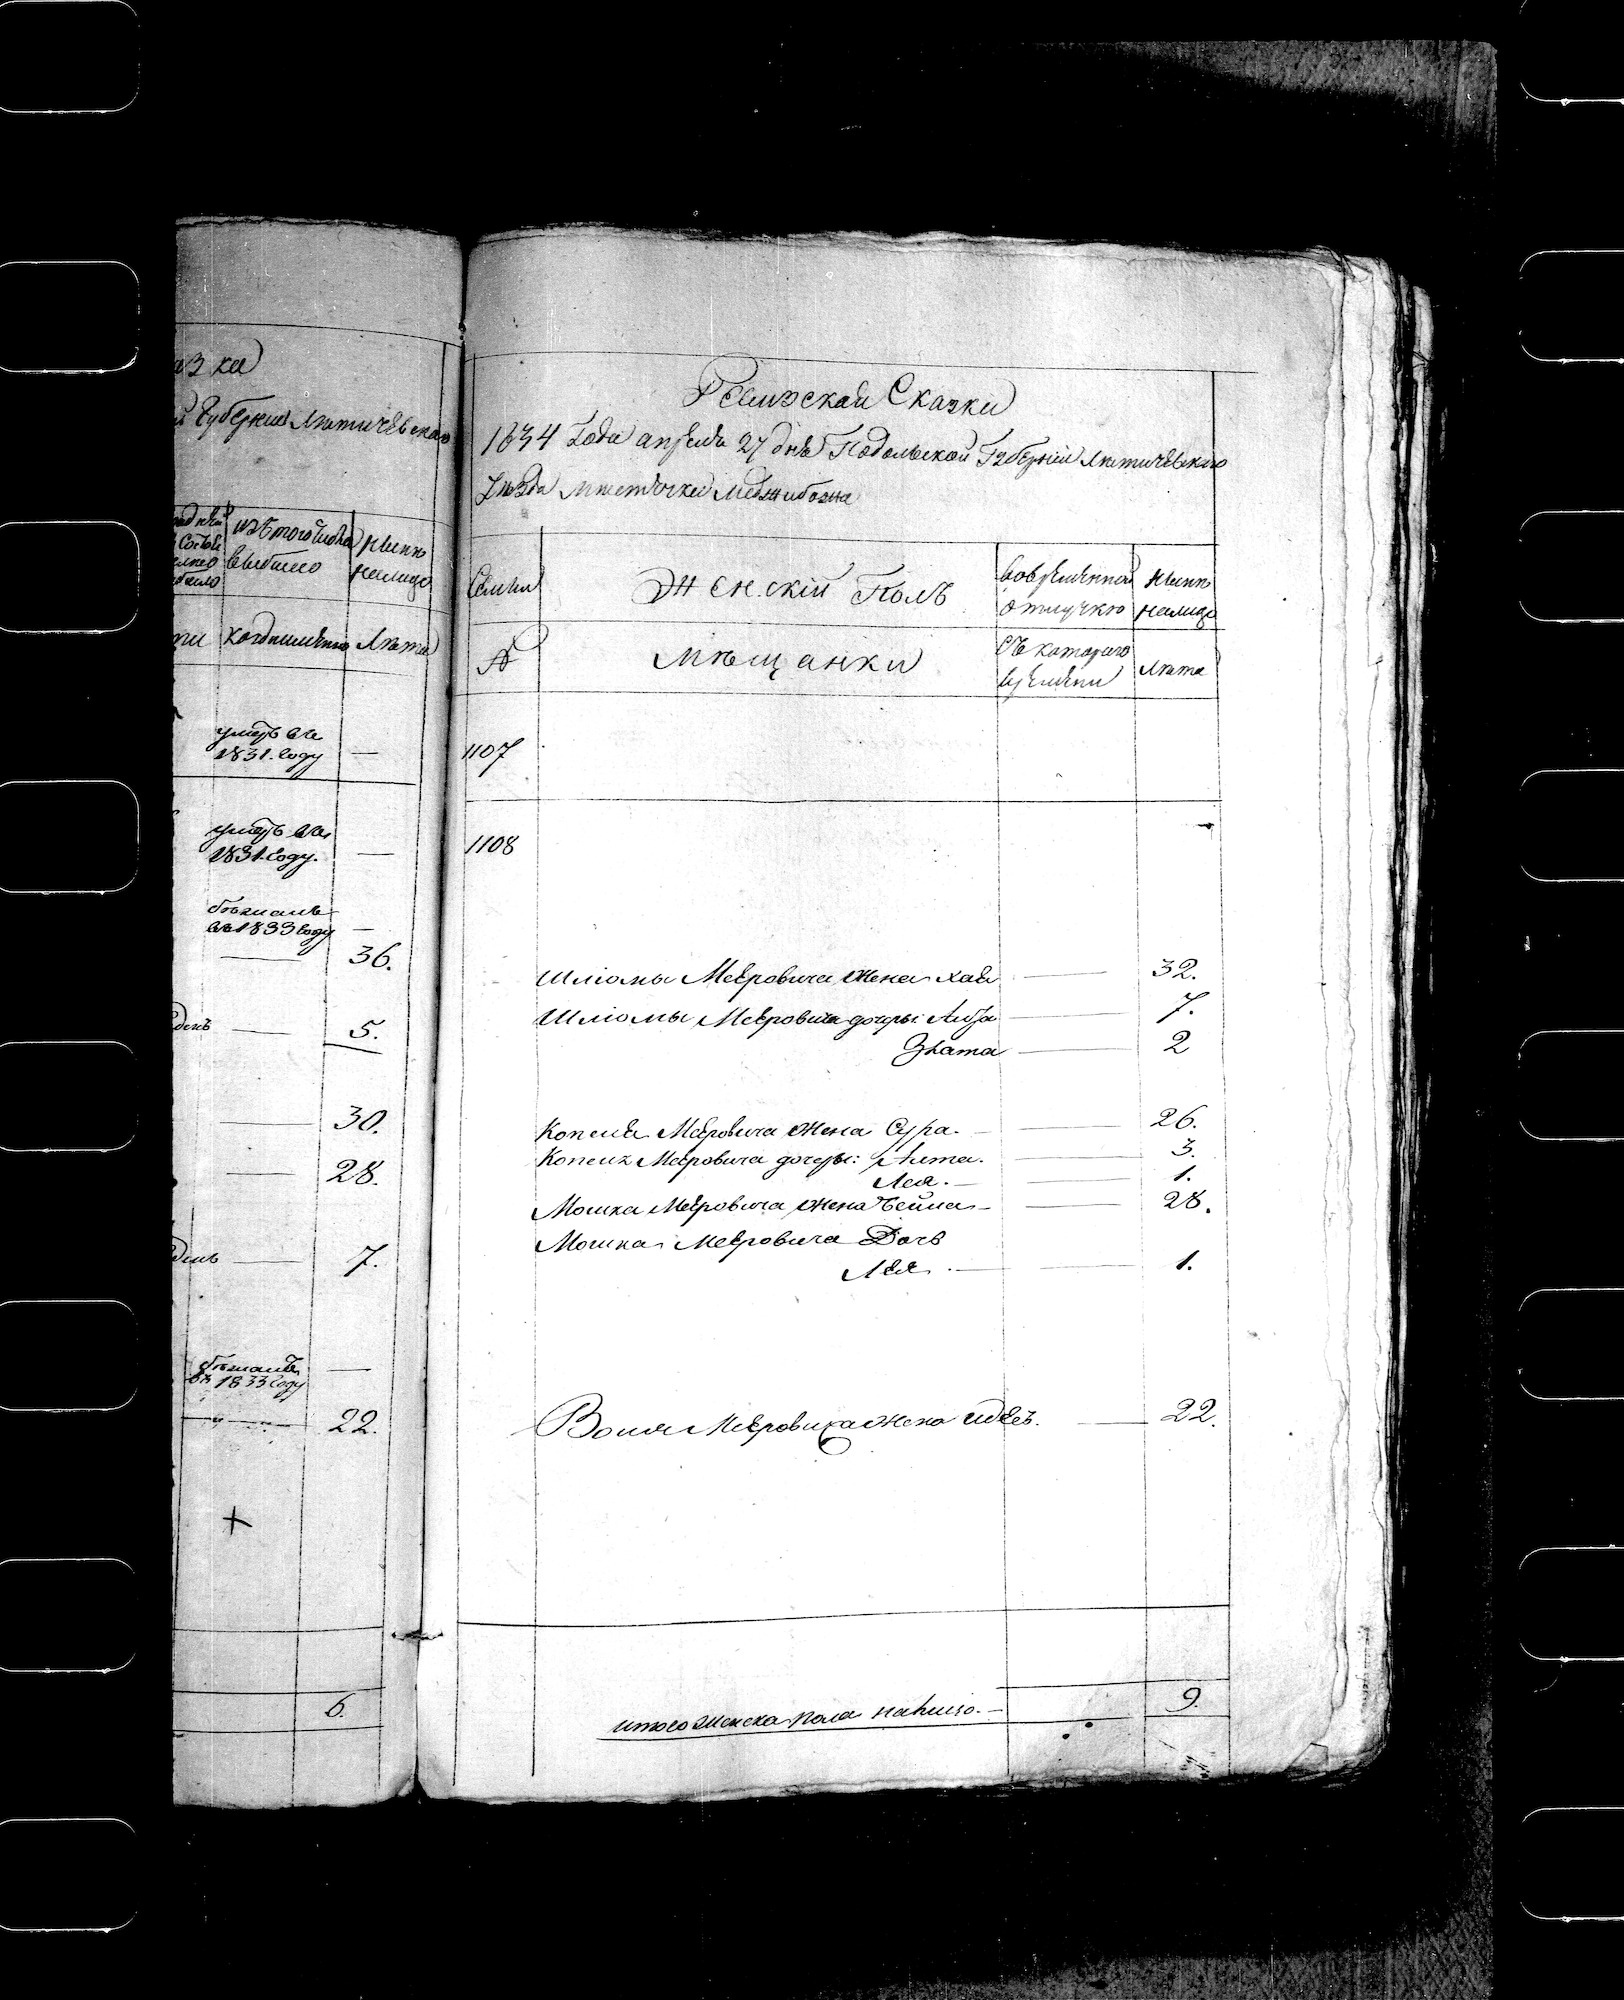 зка
Губернии Летичевскаго
изъ того числа
выбыло
ныне
налицо
когда именно
Лета
умеръ въ
1831. году
—
умеръ въ
1831. году.
—
бежалъ
въ 1833 году
—
36.
5.
30.
28.
7.
бежалъ
въ 1833 году
—
22.
+
6.
Ревижская Сказка
1834 Года апреля 27 дня Подольской Губернии Летичевскаго
Уезда местечка Меджибожа
Семьи
Женскій Полъ
во временной
отлучке
ныне
налицо
№
Мещанки
Съ котораго
времени
Лета
1107
1108
Шліомы Мееровича жена хая 32.
Шліомы Мееровича дочери: 7.
Злата 2
Мееровича жена Сура. 26.
Мееровича дочери: 3.
Лея. 1.
Мошка Мееровича жена Бейла 28.
Мошка Мееровича Дочь
Лея. 1.
Мееровича жена 22.
итого женска пола налицо. 9.